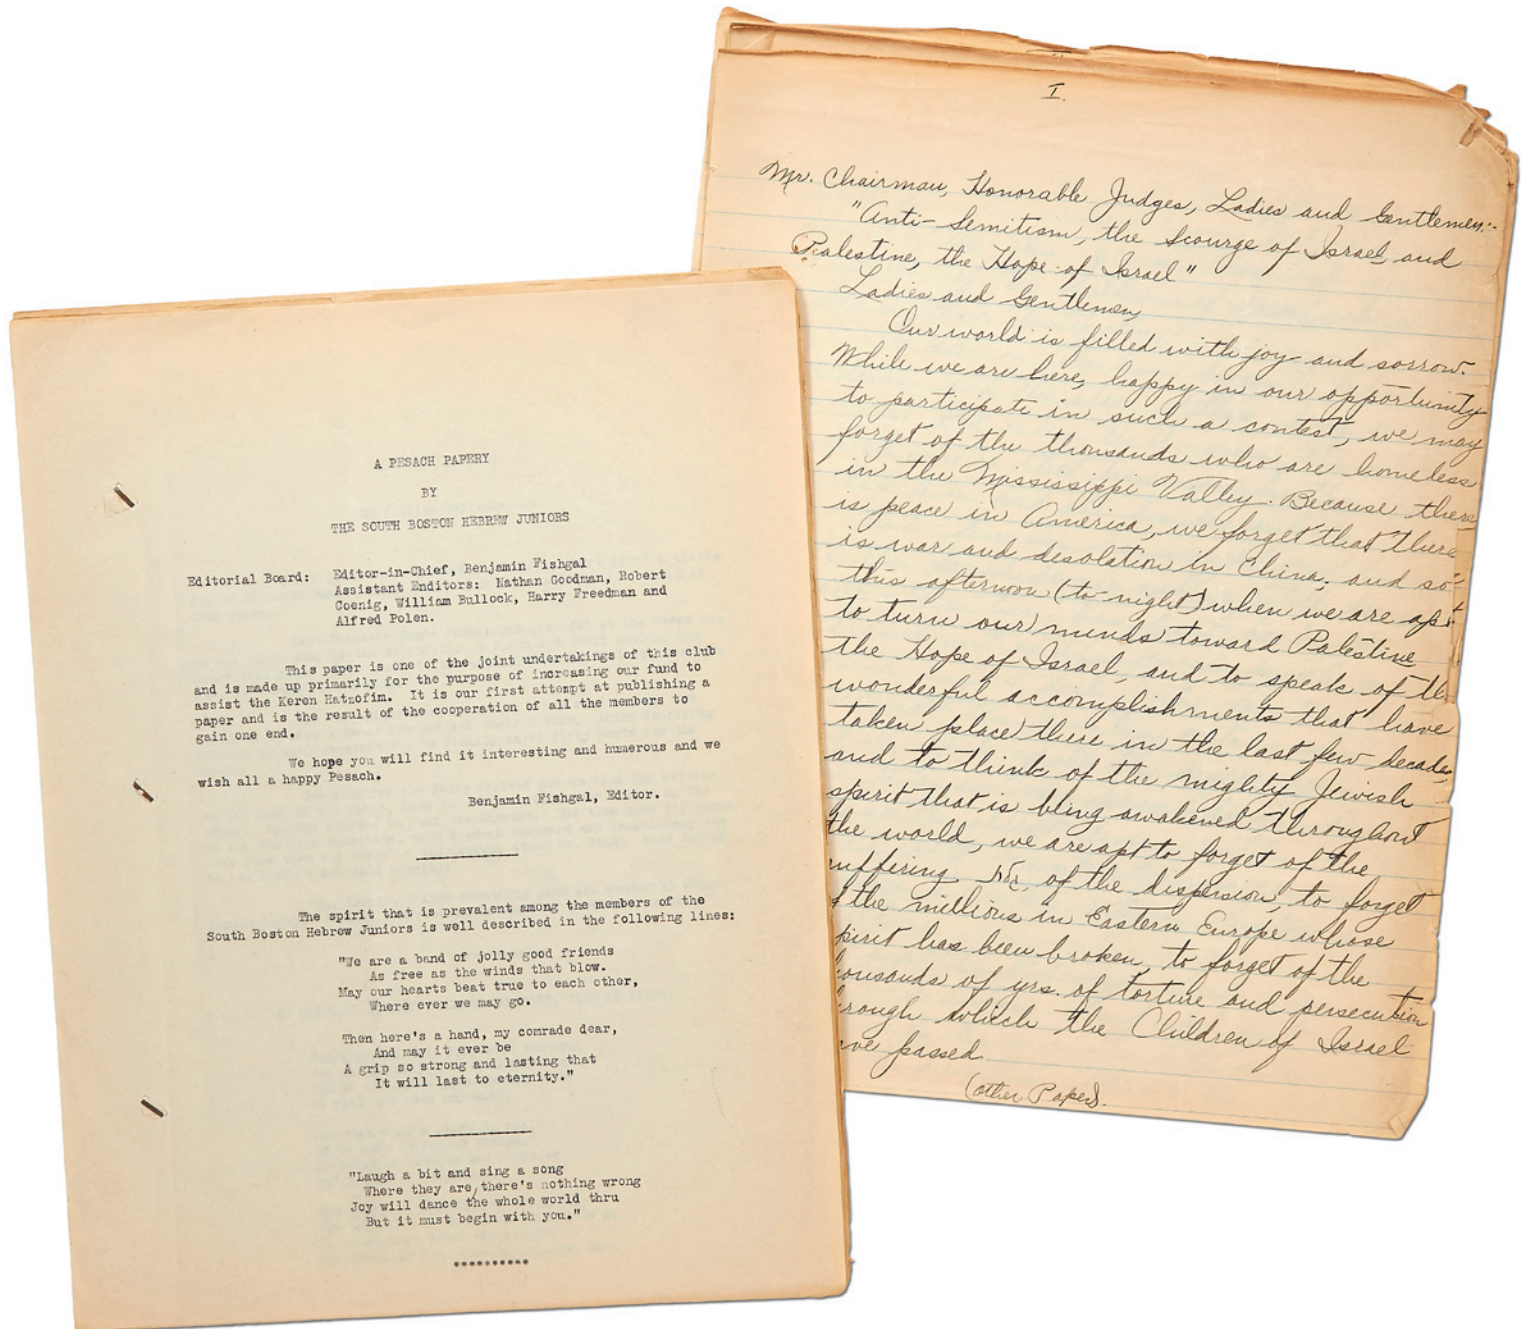 A PESACH PAPERY
BY
THE SOUTH BOSTON HEBREW JUNIORS
Editorial Board: Editor-in-Chief, Benjamin Fishgal
Assistant Enditors: Nathan Goodman, Robert
Coenig, William Bullock, Harry Freedman and
Alfred Polen.
This paper is one of the joint undertakings of this club
and is made up primarily for the purpose of increasing our fund to
assist the Keren Hatzofim. It is our first attempt at publishing a
paper and is the result of the cooperation of all the members to
gain one end.
We hope you will find it interesting and humerous and we
wish all a happy Pesach.
Benjamin Fishgal, Editor.
The spirit that is prevalent among the members of the
South Boston Hebrew Juniors is well described in the following lines:
"We are a band of jolly good friends
As free as the winds that blow.
May our hearts beat true to each other,
Where ever we may go.
Then here's a hand, my comrade dear,
And may it ever be
A grip so strong and lasting that
It will last to eternity."
"Laugh a bit and sing a song
Where they are, there's nothing wrong
Joy will dance the whole world thru
But it must begin with you."
**********
I.
Mr. Chairman, Honorable Judges, Ladies and Gentlemen:-
"Anti-Semitism, the Scourge of Israel, and
Palestine, the Hope of Israel"
Ladies and Gentlemen,
Our world is filled with joy and sorrow.
While we are here, happy in our opportunity
to participate in such a contest, we may
forget of the thousands who are homeless
in the Mississippi Valley. Because there
is peace in America, we forget that there
is war and desolation in China; and so
this afternoon (to-night) when we are apt
to turn our minds toward Palestine
the Hope of Israel, and to speak of the
wonderful accomplishments that have
taken place there in the last few decades
and to think of the mighty Jewish
spirit that is being awakened throughout
the world, we are apt to forget of the
uffering of the dispersion, to forget
f the millions in Eastern Europe whose
pirit has been broken, to forget of the
housands of yrs. of torture and persecution
hrough which the Children of Israel
ve passed.
(other Paper).